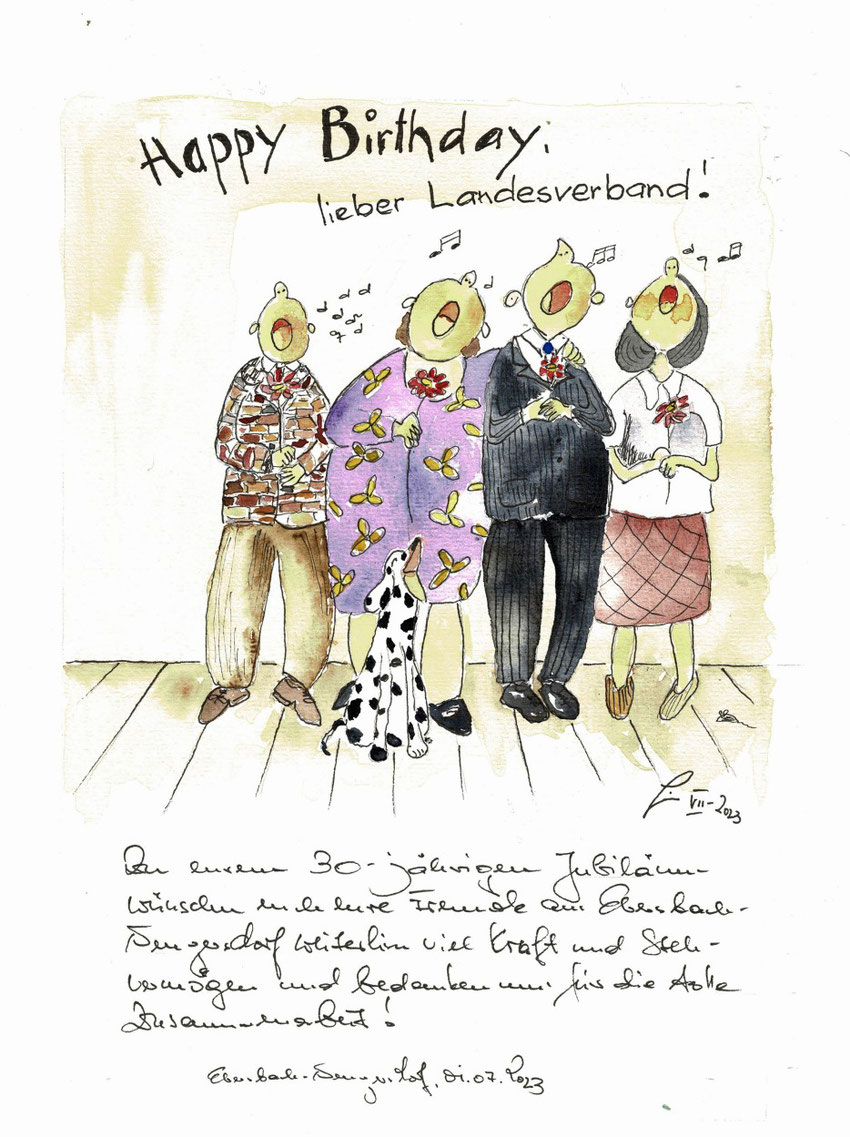 Happy Birthday,
lieber Landesverband!
VII-2023
Zu eurem 30-jährigen Jubiläum
wünschen euch eure Freunde aus Ebersbach-
Neugersdorf weiterhin viel Kraft und Steh-
vermögen und bedanken uns für die tolle
Zusammenarbeit!
Ebersbach-Neugersdorf, 01.07.2023